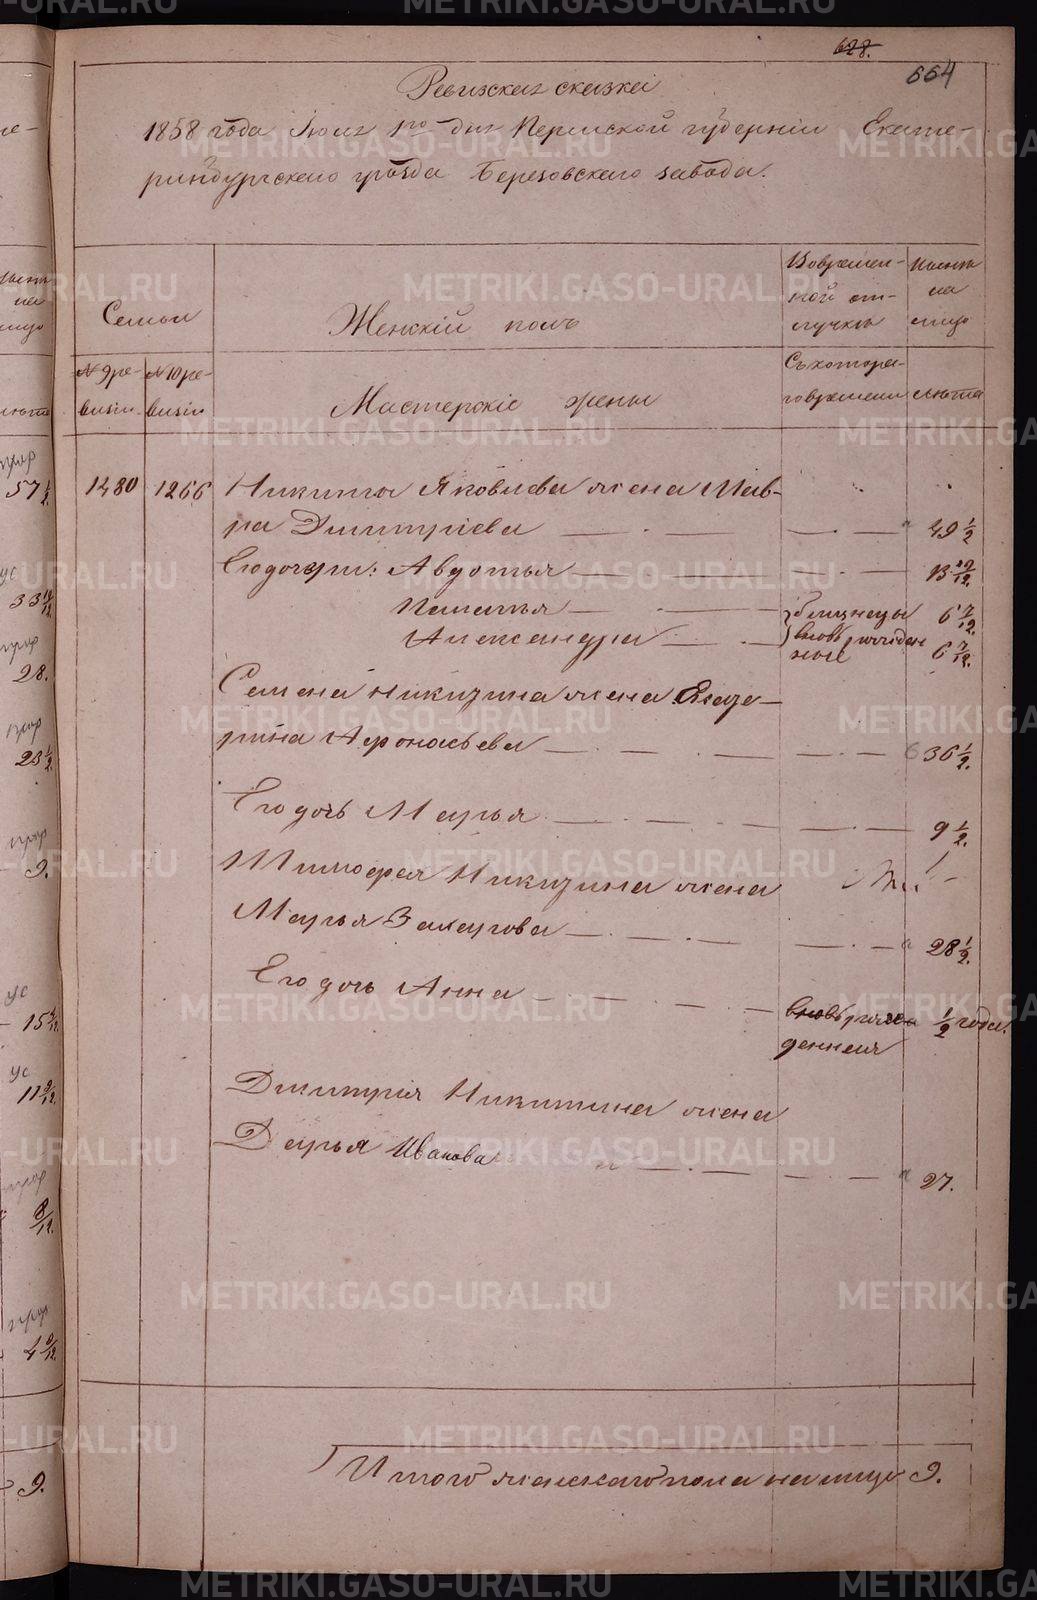 628.
664
Ревизская сказка
1858 года Июня 1го дня Пермской губернiи Екате-
ринбургскаго уѣзда Березовскаго завода.
Семьи
Женскiй полъ
Во времен-
ной от-
лучкѣ
Нынѣ
на
лицо
№ 9 ре-
визiи
№ 10 ре-
визiи
Мастерскiе жены
Съ котора-
го времени
лѣта
1480 1266 Никиты Яковлева жена Мав-
ра Дмитрiева 49 1/2
Его дочери: Авдотья 13 10/12.
Палатья близнецы 6 7/12.
Александра вновь рожден
ные 6 7/12.
Семена Никитина жена Екате-
рина Афонасьева 36 1/2.
Его дочь Марья 9 1/2.
Тимофея Никитина жена
Марья Захарова 28 1/2.
Его дочь Анна вновь рож
денная 1/2 года.
Дмитрiя Никитина жена
Дарья Иванова 27.
Итого женскаго пола на лицо 9.
57 1/2
33 10/12
28.
23 1/2
9.
ус
15 7/12
ус
11 9/12
8/12
4 8/12
9.
METRIKI.GASO-URAL.RU